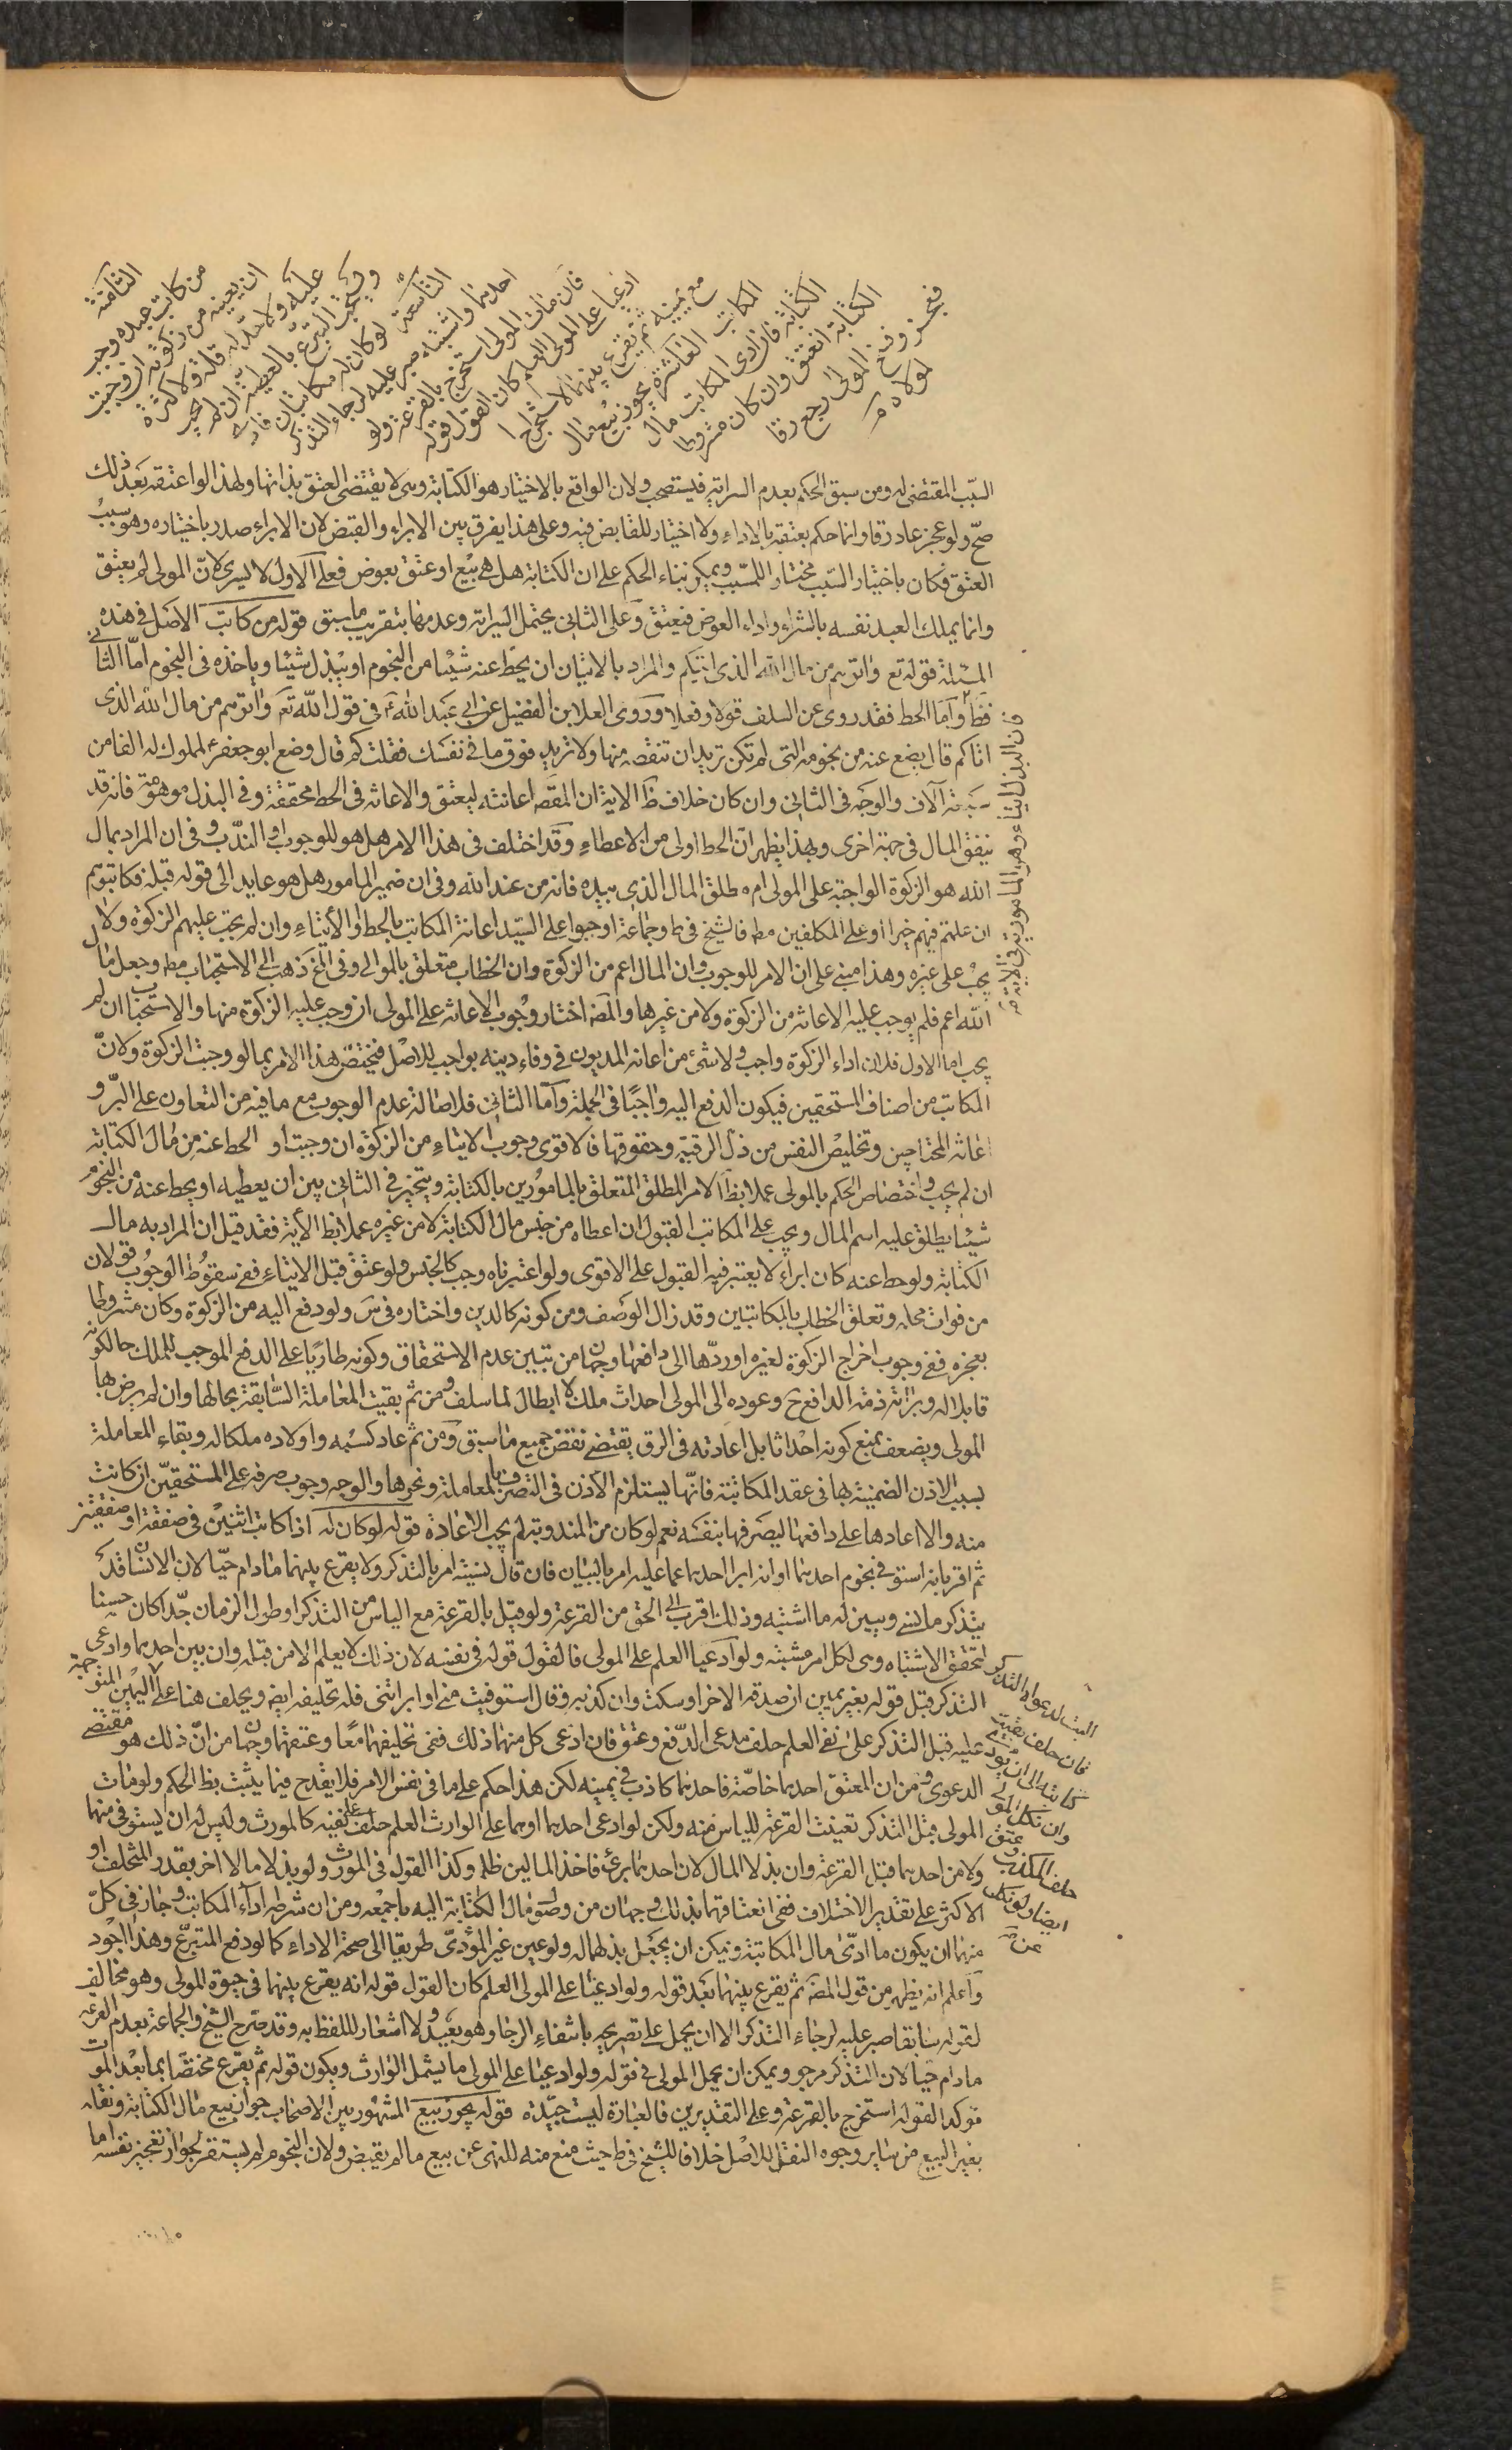 الثامنة
من كاتب عبده وجب
ان يعينه من زكوته ان وجبت
عليه ولا حد له قلة ولا كثرة
ويستحب التبرع بالعطية ان لم تجب
التاسعة لو كان له مكاتبان فادى
احدهما واشتبه صبر عليه لرجاء التذكر
فان مات المولى استخرج بالقرعة ولو
ادعيا على المولى العلم كان القول قوله
مع يمينه ثم يقرع بينهما لاستخراج
المكاتب العاشرة يجوز بيع مال
الكتابة فان ادى المكاتب مال
الكتابة انعتق وان كان مشروطا
فعجز وفسخ المولى رجع رقا
لمولاه
السبب المقتضى له ومن سبق الحكم بعدم السراية فيستصحب ولان الواقع بالاختيار هو الكتابة وهى لا يقتضى العتق بذاتها ولهذا لو اعتقه بعد ذلك
صح ولو عجز عاد رقا وانما حكم بعتقه بالاداء ولا اختيار للقابض فيه وعلى هذا يفرق بين الابراء والقبض لان الابراء صدر باختياره وهو سبب
العتق فكان باختيار السبب مختار اللمسبب ويمكن بناء الحكم على ان الكتابة هل هى بيع او عتق بعوض فعلى الاول لا يسرى لان المولى لم يعتق
وانما يملك العبد نفسه بالشراء واداء العوض فيعتق وعلى الثانى يحتمل السراية وعدمها بتقريب ما سبق قوله من كاتب الاصل فى هذه
المسئلة قوله تع واتوهم من مال الله الذى اتيكم والمراد بالايتان ان يحط عنه شيئا من النجوم او يبذل شيئا وياخذه فى النجوم اما الثانى
فظ واما الحط فقد روى عن السلف قولا وفعلا وروى العلا بن الفضيل عن ابى عبد الله ع فى قول الله تع واتوهم من مال الله الذى
اتاكم قال يضع عنه من نجومه التى لم تكن تريد ان تنقصه منها ولا تزيد فوق ما فى نفسك فقلت كم قال وضع ابو جعفر ع لمملوك له الفا من
ستة آلاف والوجه فى الثانى وان كان خلاف ظ الاية ان المقصد اعانته ليعتق والاعانة فى الحط محققة وفى البذل موهومة فانه قد
ينفق المال فى جهة اخرى وبهذا يظهر ان الحط اولى من الاعطاء وقد اختلف فى هذا الامر هل هو للوجوب او الندب وفى ان المراد بمال
الله هو الزكوة الواجبة على المولى ام مطلق المال الذى بيده فانه من عند الله وفى ان ضمير المامور هل هو عايد الى قوله قبله فكاتبوهم
ان علمتم فيهم خيرا او على المكلفين مط فالشيخ فى ط وجماعة اوجبوا على السيد اعانة المكاتب بالحط او الايتاء وان لم يجب عليهم الزكوة ولا
يجب على غيره وهذا مبنى على ان الامر للوجوب وان المال اعم من الزكوة وان الخطاب متعلق بالموالى وفى المخ ذهب الى الاستحباب مط وجعل مال
الله اعم فلم يوجب عليه الاعانة من الزكوة ولا من غيرها والمصنف اختار وجوب الاعانة على المولى ان وجب عليه الزكوة منها والاستحباب ان لم
يجب اما الاول فلان اداء الزكوة واجب ولا شئ من اعانة المديون فى وفاء دينه بواجب للاصل فيختص هذا الامر بما لو وجبت الزكوة ولان
المكاتب من اصناف المستحقين فيكون الدفع اليه واجبا فى الجملة واما الثانى فلاصالة عدم الوجوب مع ما فيه من التعاون على البر و
اعانة المحتاجين وتخليص النفس من ذل الرقية وحقوقها فالاقوى وجوب الايتاء من الزكوة ان وجبت او الحط عنه من مال الكتابة
ان لم يجب واختصاص الحكم بالمولى عملا بظ الامر المطلق المتعلق بالمامورين بالكتابة ويتخير فى الثانى بين ان يعطيه او يحط عنه من النجوم
شيئا يطلق عليه اسم المال ويجب على المكاتب القبول ان اعطاه من جنس مال الكتابة لا من غيره عملا بظ الاية فقد قيل ان المراد به مال
الكتابة ولو حط عنه كان ابراء لا يعتبر فيه القبول على الاقوى ولو اعتبرناه وجب كالجنس ولو عتق قبل الايتاء ففى سقوط الوجوب قولان
من فوات محله وتعلق الخطاب بالمكاتبين وقد زال الوصف ومن كونه كالدين واختاره فى س ولو دفع اليه من الزكوة وكان مشروطا
بعجزه ففى وجوب اخراج الزكوة لغيره او ردها الى دافعها وجهان من تبين عدم الاستحقاق وكونه طاريا على الدفع الموجب للملك حال كونه
قابلا له وبرائة ذمة الدافع ح وعوده الى المولى احداث ملك لا ابطال لما سلف ومن ثم بقيت المعاملة السابقة بحالها وان لم يرض بها
المولى ويضعف بمنع كونه احداثا بل اعادته فى الرق يقتضى نقض جميع ما سبق ومن ثم عاد كسبه واولاده ملكا له وبقاء المعاملة
بسبب الاذن الضمنية بها فى عقد المكاتبة فانها يستلزم الاذن فى التصرف بالمعاملة ونحوها والوجه وجوب صرفه على المستحقين ان كانت
منه والا اعادها على دافعها ليصرفها بنفسه نعم لو كان من المندوبة لم يجب الاعادة قوله لو كان له اذا كاتب اثنين فى صفقة او صفقتين
ثم اقر بانه استوفى نجوم احدهما او انه ابرا احدهما عما عليه امر بالبيان فان قال نسيته امر بالتذكر ولا يقرع بينهما ما دام حيا لان الانسان قد
يتذكر ما نسى ويبين له ما اشتبه وذلك اقرب الى الحق من القرعة ولو قيل بالقرعة مع الياس من التذكر او طول الزمان جدا كان حسنا
لتحقق الاشتباه وهى لكل امر مشتبه ولو ادعيا العلم على المولى فالقول قوله فى نفسه لان ذلك لا يعلم الا من قبله وان بين احدهما وادعى
التذكر قبل قوله بغير يمين ان صدقه الاخر او سكت وان كذبه وقال استوفيت منى او ابراتنى فله تحليفه ايض ويحلف هنا على اليمين المتوجهة
عليه قبل التذكر على نفى العلم حلف مدعى الدفع وعتق فان ادعى كل منهما ذلك ففى تحليفهما معا وعتقهما وجهان من ان ذلك هو مقتضى
الدعوى ومن ان المعتق احدهما خاصة فاحدهما كاذب فى يمينه لكن هذا حكم على ما فى نفس الامر فلا يقدح فيما يثبت بظ الحكم ولو مات
المولى قبل التذكر تعينت القرعة للياس منه ولكن لو ادعى احدهما او هما على الوارث العلم حلف على نفيه كالمورث وليس له ان يستوفى منهما
ولا من احدهما قبل القرعة وان بذلا المال لان احدهما برئ فاخذ المالين ظلم وكذا القول فى المورث ولو بذلا مالا اخر بقدر المتخلف او
الاكثر على تقدير الاختلاف ففى انعتاقهما بذلك وجهان من وصول مال الكتابة اليه باجمعه ومن ان شرطه اداء المكاتب وجاز فى كل
منهما ان يكون ما ادى مال المكاتبة ويمكن ان يجعل بذلهما له ولو عين غير المؤدى طريقا الى صحة الاداء كما لو دفع المتبرع وهذا اجود
واعلم انه يظهر من قول المصنف ثم يقرع بينهما بعد قوله ولو ادعيا على المولى العلم كان القول قوله انه يقرع بينهما فى حيوة المولى وهو مخالف
لقوله سابقا صبر عليه لرجاء التذكر الا ان يحمل على تصريحه بانتفاء الرجا وهو بعيد ولا اشعار للفظ به وقد صرح الشيخ والجماعة بعدم القرعة
ما دام حيا لان التذكر مرجو ويمكن ان يحمل المولى فى قوله ولو ادعيا على المولى ما يشمل الوارث ويكون قوله ثم يقرع مختصا بما بعد الموت
توكدا لقوله استخرج بالقرعة وعلى التقديرين فالعبارة ليست جيدة قوله يجوز بيع المشهور بين الاصحاب جواز بيع مال الكتابة ونقله
بغير البيع من ساير وجوه النقل للاصل خلافا للشيخ فى ط حيث منع منه للنهى عن بيع ما لم يقبض ولان النجوم لم يستقر لجواز تعجيز نفسه اما
فان البذل ايتاء وهو المامور به فى الاية
البت لدعواه التذكر
فان حلف بقيت
كتابته الى ان يؤدى
وان نكل المولى
حلف المكذب وعتق
ايضا ولو نكل
عن